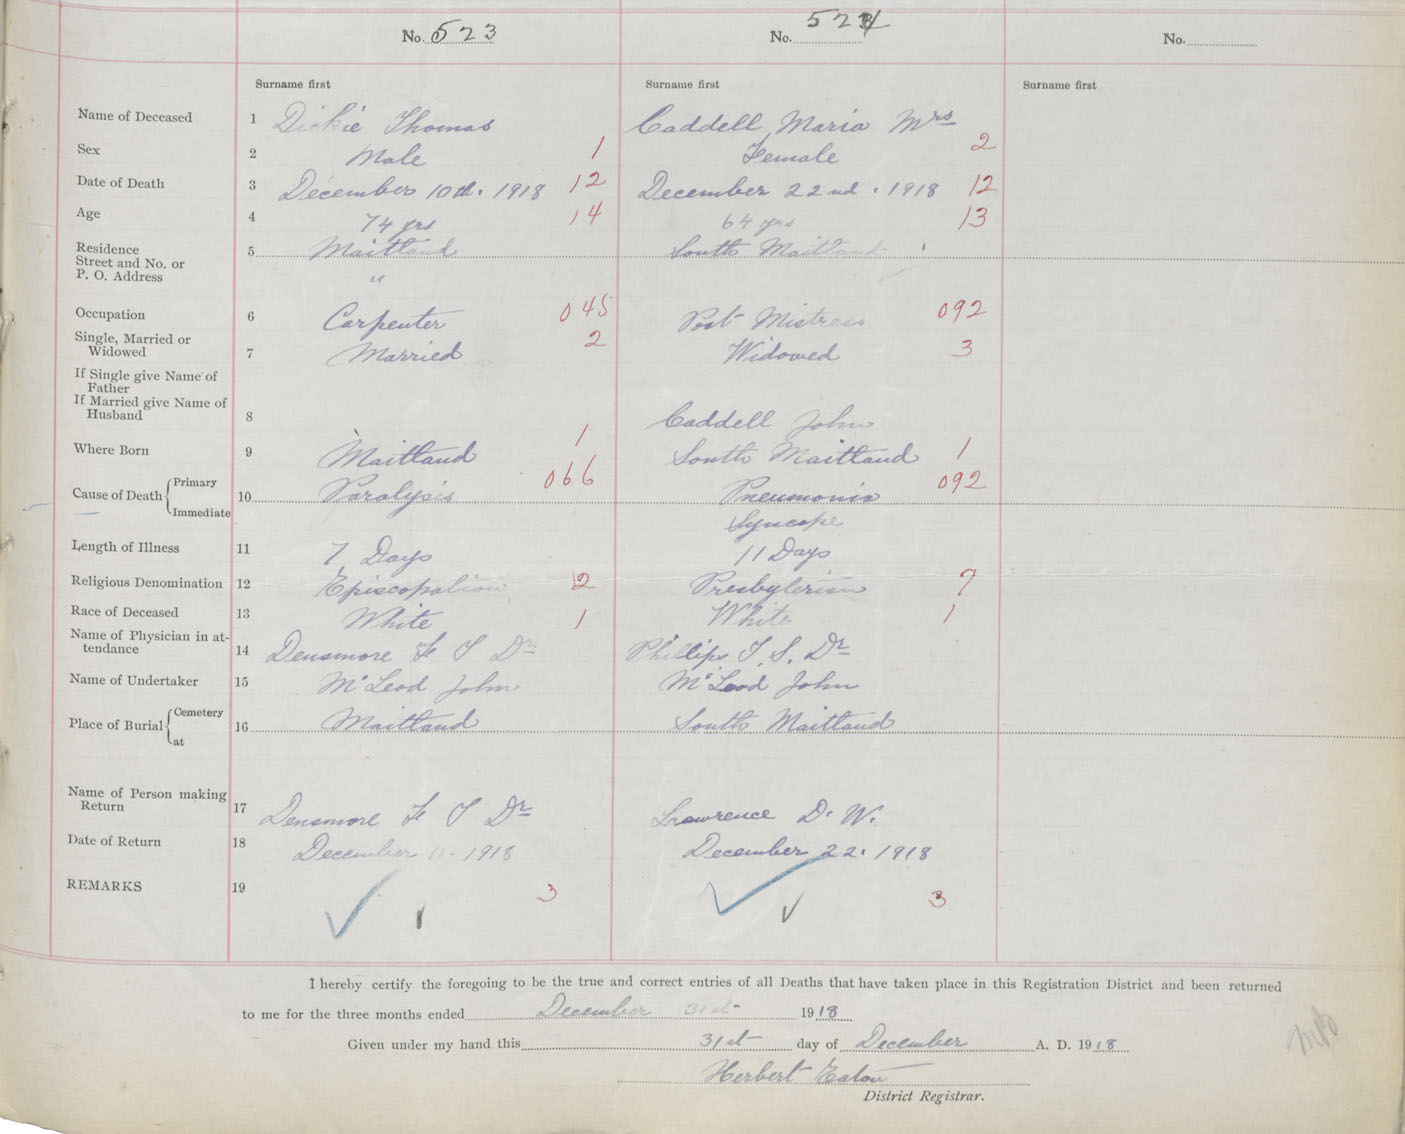 No. 523 No. 524 No.
Surname first Surname first Surname first
Name of Deceased 1 Dickie Thomas Caddell Maria Mrs
Sex 2 Male 1 Female 2
Date of Death 3 December 10th. 1918 12 December 22nd. 1918 12
Age 4 74 yrs 14 64 yrs 13
Residence 5 Maitland South Maitland
Street and No. or
P. O. Address "
Occupation 6 Carpenter 045 Post Mistress 092
Single, Married or
Widowed 7 Married 2 Widowed 3
If Single give Name of
Father
If Married give Name of
Husband 8 Caddell John
Where Born 9 Maitland 1 South Maitland 1
Cause of Death Primary 10 Paralysis 066 Pneumonia 092
Immediate Syncope
Length of Illness 11 7 Days 11 Days
Religious Denomination 12 Episcopalian 2 Presbyterian 7
Race of Deceased 13 White 1 White 1
Name of Physician in at-
tendance 14 Densmore F S Dr Phillips T. S. Dr
Name of Undertaker 15 McLeod John McLeod John
Place of Burial Cemetery 16 Maitland South Maitland
at
Name of Person making
Return 17 Densmore F S Dr Lawrence D. W.
Date of Return 18 December 11. 1918 December 22. 1918
REMARKS 19 3 3
I hereby certify the foregoing to be the true and correct entries of all Deaths that have taken place in this Registration District and been returned
to me for the three months ended December 31st 1918
Given under my hand this 31st day of December A. D. 1918
Herbert Eaton
District Registrar.